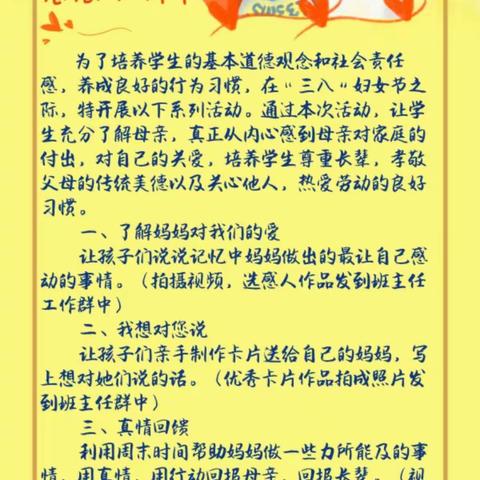 为了培养学生的基本道德观念和社会责任
感，养成良好的行为习惯，在“三八”妇女节之
际，特开展以下系列活动。通过本次活动，让学
生充分了解母亲，真正从内心感到母亲对家庭的
付出，对自己的关爱，培养学生尊重长辈，孝敬
父母的传统美德以及关心他人，热爱劳动的良好
习惯。
一、了解妈妈对我们的爱
让孩子们说说记忆中妈妈做出的最让自己感
动的事情。（拍摄视频，选感人作品发到班主任
工作群中）
二、我想对您说
让孩子们亲手制作卡片送给自己的妈妈，写
上想对她们说的话。（优秀卡片作品拍成照片发
到班主任群中）
三、真情回馈
利用周末时间帮助妈妈做一些力所能及的事
情，用真情，用行动回报母亲，回报长辈。（视